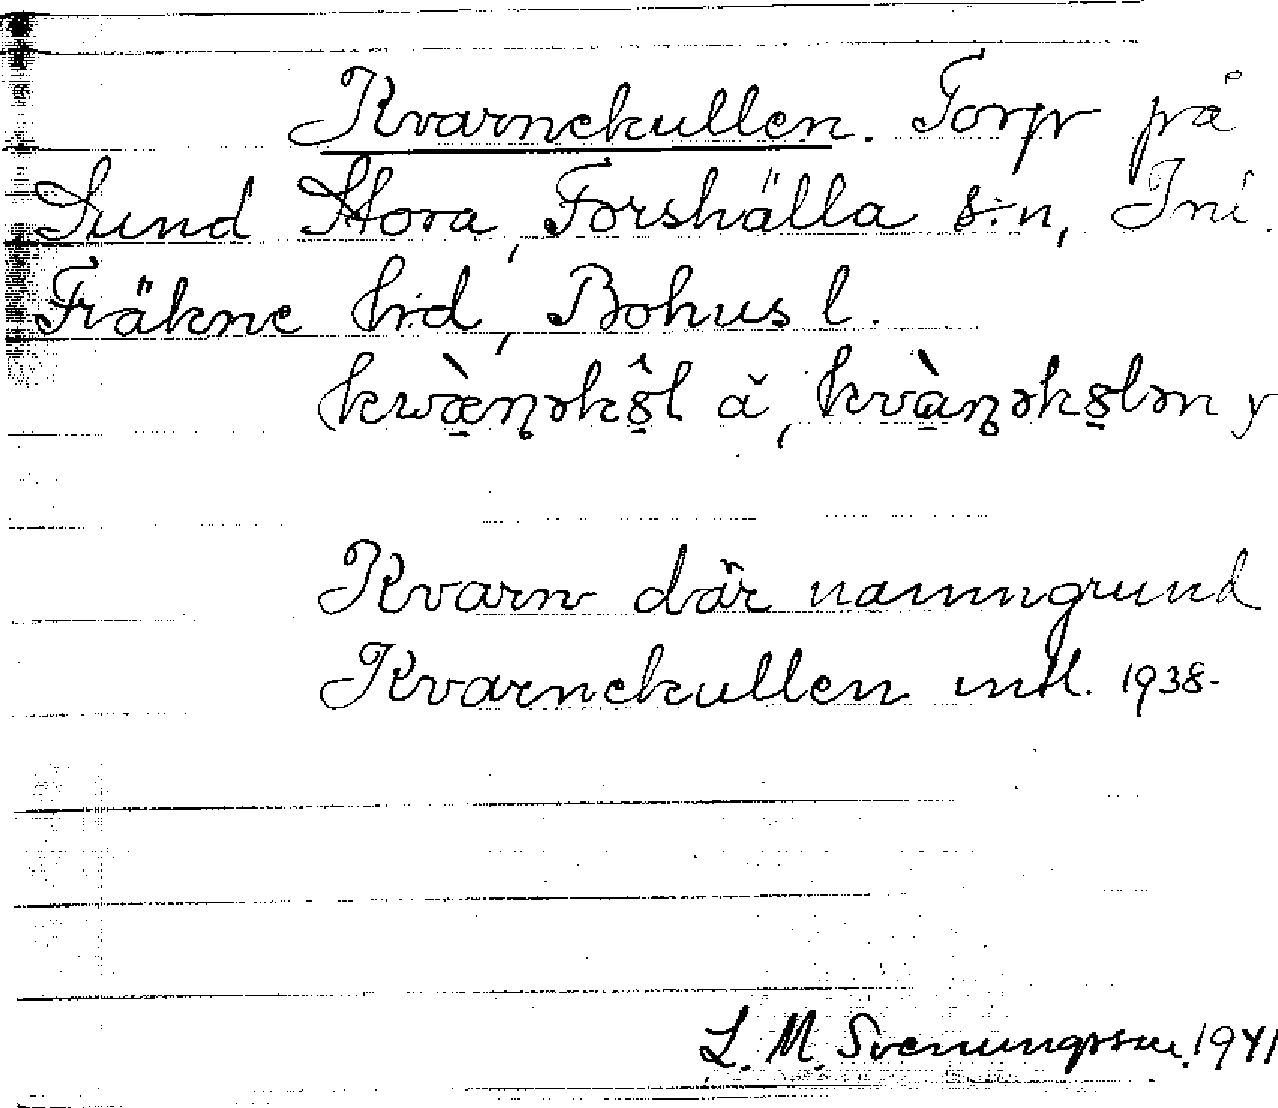 Kvarnekullen. Torp på
Sund Stora, Forshälla s:n, Ini.
Fräkne hd, Bohus l.
kwæ̀ɳəkôl ă, kvàɳəkolən y
Kvarn där namngrund
Kvarnekullen mtl. 1938-
L. M. Svenungsson. 1941